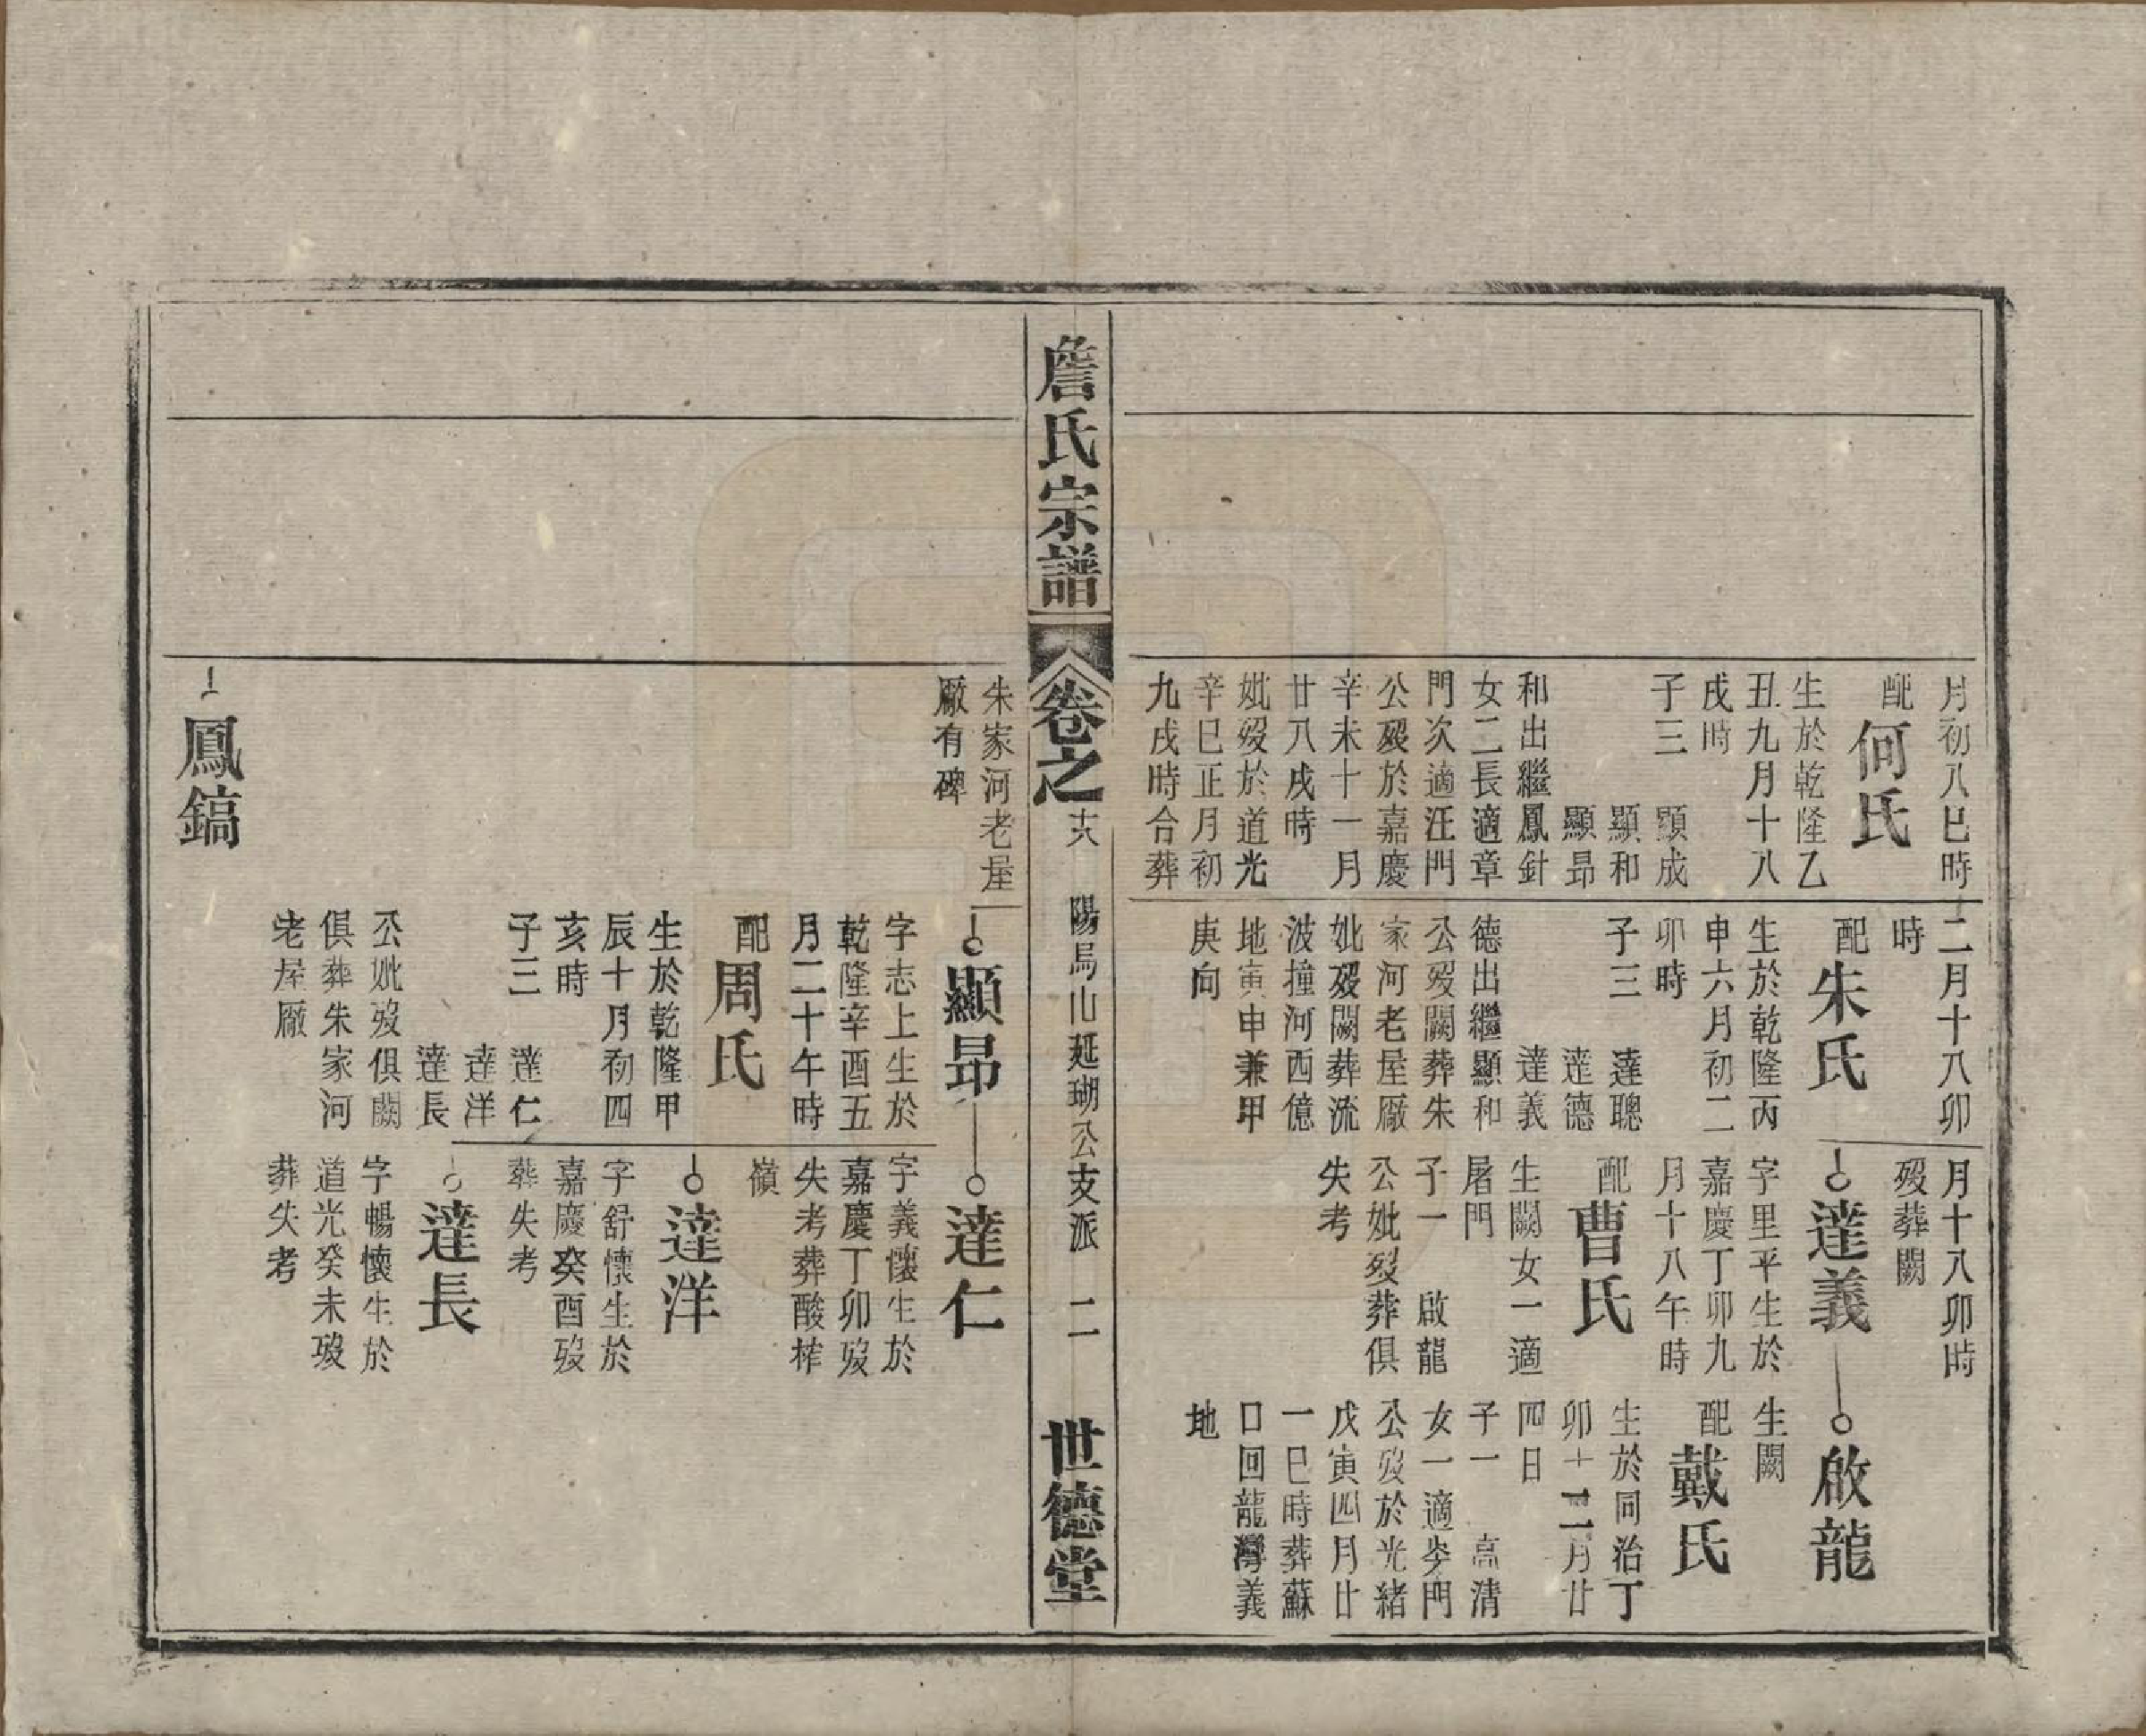 月初八巳時
配何氏
生於乾隆乙
丑九月十八
戌時
子三 顯成
顯和
顯昂
和出繼鳳針
女二長適章
門次適汪門
公歿於嘉慶
辛未十一月
廿八戌時
妣歿於道光
辛巳正月初
九戌時合葬
二月十八卯
時
配朱氏
生於乾隆丙
申六月初二
卯時
子三 達聰
達德
達義
德出繼顯和
公歿闕葬朱
家河老屋廠
妣歿闕葬流
波撞河西億
地寅申兼甲
庚向
月十八卯時
歿葬闕
達義
字里平生於
嘉慶丁卯九
月十八午時
配曹氏
生闕女一適
屠門
子一 啟龍
公妣歿葬俱
失考
啟龍
生闕
配戴氏
生於同治丁
卯十二月廿
四日
子一 高清
女一適岑門
公歿於光緒
戊寅四月廿
一巳時葬蘇
口回龍灣義
地
詹氏宗譜
卷之十六
陽烏山延瑚公支派
二
世德堂
朱家河老屋
廠有碑
鳳鎬
顯昂
字志上生於
乾隆辛酉五
月二十午時
配周氏
生於乾隆甲
辰十月初四
亥時
子三 達仁
達洋
達長
公妣歿俱闕
俱葬朱家河
老屋廠
達仁
字義懷生於
嘉慶丁卯歿
失考葬酸榨
嶺
達洋
字舒懷生於
嘉慶癸酉歿
葬失考
達長
字暢懷生於
道光癸未歿
葬失考